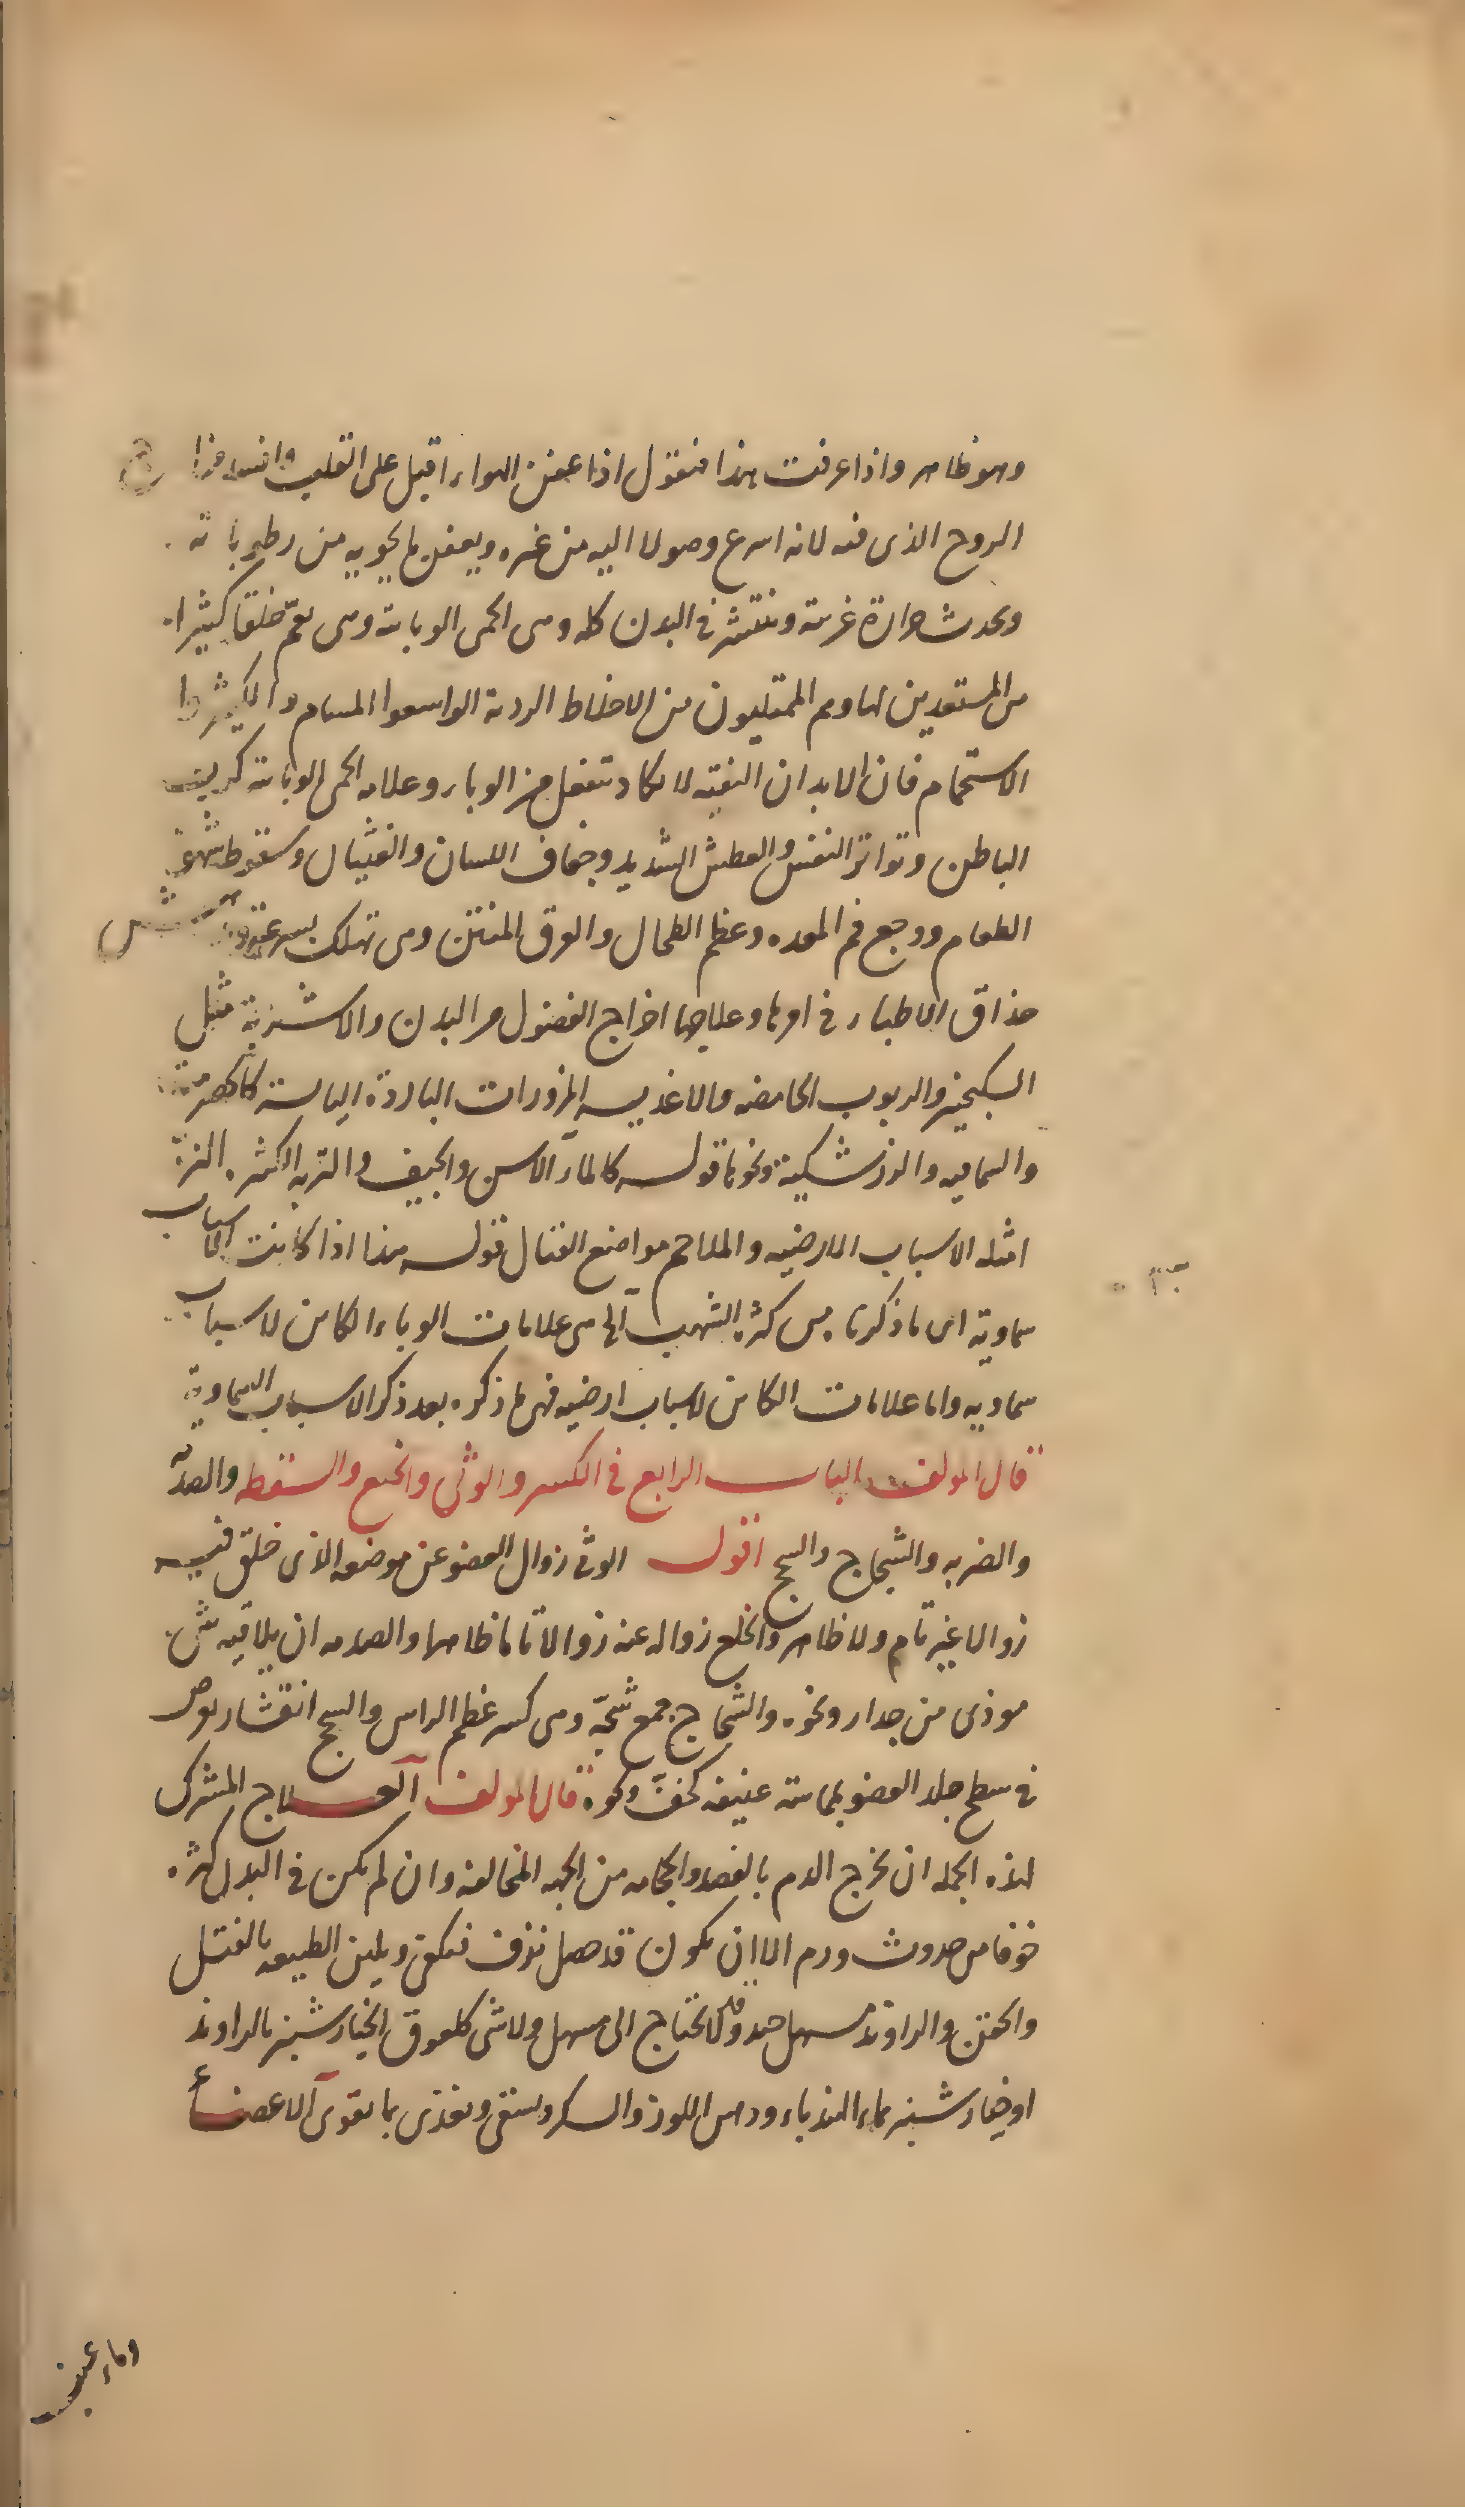 وهو ظاهر واذا عرفت هذا فنقول اذا عفن الهواء اقبل على القلب وافسد مزاج
الروح الذى فيه لانه اسرع وصولا اليه من غيره ويعفن ما يحويه من رطوباته
ويحدث حرارة غريبة وتنتشر فى البدن كله وهى الحمى الوبائية وهى تعم خلقا كثيرا
من المستعدين لها وهم الممتليون من الاخلاط الردية الواسعوا المسام والكثيروا
الاستحمام فان الابدان النقية لا تكاد تنفعل من الوباء وعلامه الحمى الوبائية كرب
الباطن وتواتر النفس والعطش الشديد وجفاف اللسان والغثيان وسقوط شهوة
الطعام ووجع فم المعده وعظم الطحال والعرق المنتن وهى تهلك بسرعة
حذاق الاطباء فى امرها وعلاجها اخراج الفضول من البدن والاشربة مثل
السكنجبين والربوب الحامضه والاغذيه المزورات الباردة اليابسة كالحصرمية
والسماقيه والزرشكية ونحوها قوله كالماء الاسن والجيف والتربه الكثيره النز
امثله الاسباب الارضيه والملاحم مواضع القتال قوله هذا اذا كانت الاسباب
سماوية اى ما ذكرنا من كثرة الشهب الخ هى علامات الوباء الكائن لاسباب
سماويه واما علامات الكائن لاسباب ارضيه فهى ما ذكره بعد ذكر الاسباب السماوية
قال المولف الباب الرابع فى الكسر والوثى والخلع والسقطه والصدمة
والضربه والشجاج والسحج اقول الوثى زوال العضو عن موضعه الذى خلق فيه
زوالا غير تام ولا ظاهر والخلع زواله عنه زوالا تاما ظاهرا والصدمه ان يلاقيه شى
موذى من جدار ونحوه والشجاج جمع شجّة وهى كسر عظم الراس والسحج انقشار يعرض
فى سطح جلد العضو بمماسة عنيفه كخف ونحوه قال المولف العلاج المشترك
لهذه الجمله ان يخرج الدم بالفصد والحجامه من الجهه المخالفه وان لم يكن فى البدن كثره
خوفا من حدوث ورم الا ان يكون قد حصل نزف فيكفى ويلين الطبيعه بالفتل
والحقن والراوند مسهل جيد وقد لا يحتاج الى مسهل ولا شى كلعوق الخيارشنبر بالراوند
او خيارشنبر بماء الهندباء ودهن اللوز والسكر ويسقى ويغذى بما يقوى الاعضاء
وماء عنب